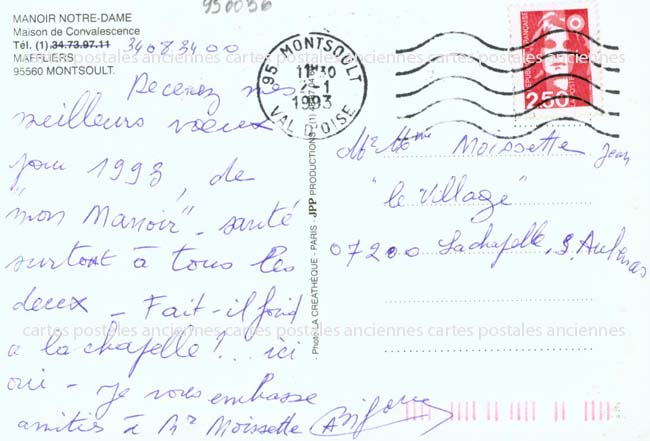 950056
MANOIR NOTRE-DAME
Maison de Convalescence
Tél. (1) 34.73.97.11 34083400
MAFFLIERS
95560 MONTSOULT.
Recevez mes
meilleurs voeux
pour 1993, de
"mon Manoir" - santé
surtout à tous les
deux - Fait-il froid
à la chapelle ! ici
oui - je vous embrasse
amitiés à Mr Moissette
95 MONTSOULT
11H30
2-1
1993
VAL D'OISE
RÉPUBLIQUE
2,50
Photo LA CREATHEQUE - PARIS - JPP PRODUCTIONS (1)
Mr Mme Moissette Jean
"le village"
07200 Lachapelle S. Aubenas
cartes postales anciennes cartes postales anciennes cartes postales anciennes
cartes postales anciennes cartes postales anciennes cartes postales anciennes